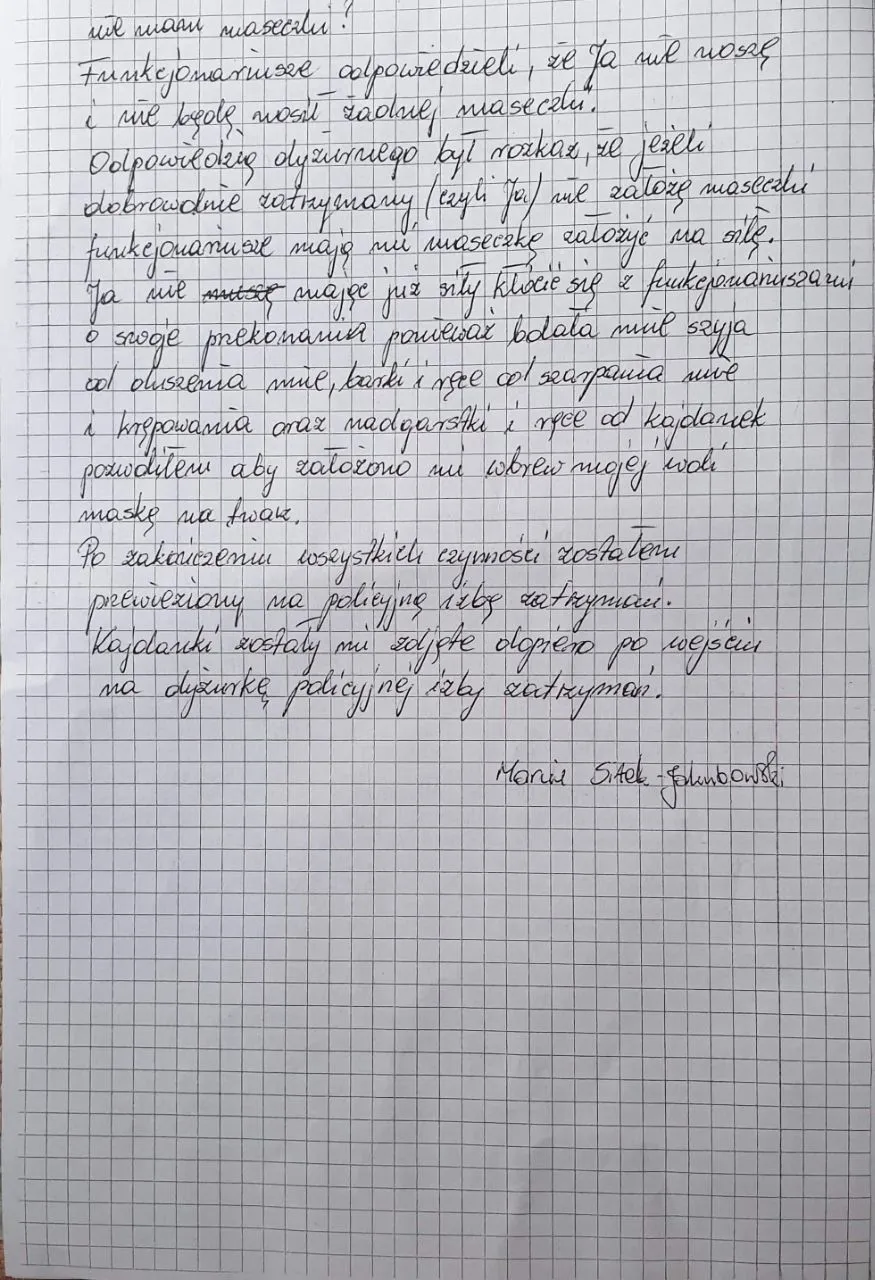 nie mam maseczki?
Funkcjonariusze odpowiedzieli, że Ja nie noszę
i nie będę nosił żadnej maseczki.
Odpowiedzią dyżurnego był rozkaz, że jeżeli
dobrowolnie zatrzymany (czyli Ja) nie założę maseczki
funkcjonariusze mają mi maseczkę założyć na siłę.
Ja nie muszę mając już siły kłócić się z funkcjonariuszami
o swoje przekonania ponieważ bolała mnie szyja
od duszenia mnie, barki i ręce od szarpania mnie
i krępowania oraz nadgarstki i ręce od kajdanek
pozwoliłem aby założono mi wbrew mojej woli
maskę na twarz.
Po zakończeniu wszystkich czynności zostałem
przewieziony na policyjną izbę zatrzymań.
Kajdanki zostały mi zdjęte dopiero po wejściu
na dyżurkę policyjnej izby zatrzymań.
Sitek-Jakubowski